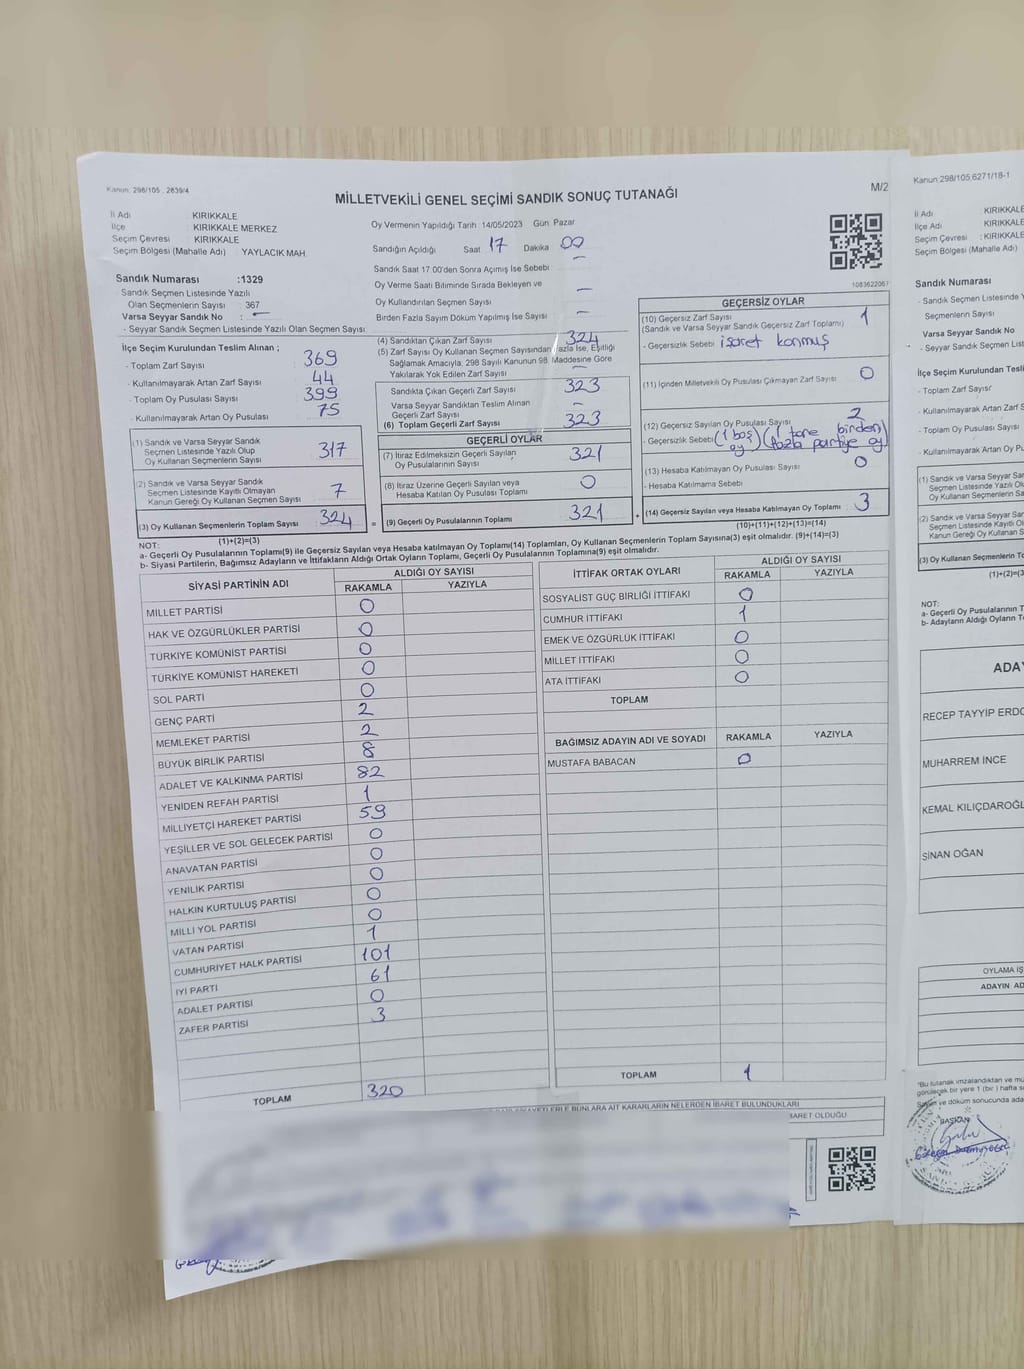 Kanun: 298/105 , 2839/4
MİLLETVEKİLİ GENEL SEÇİMİ SANDIK SONUÇ TUTANAĞI
M/2
İl Adı KIRIKKALE
İlçe KIRIKKALE MERKEZ
Seçim Çevresi KIRIKKALE
Seçim Bölgesi (Mahalle Adı) YAYLACIK MAH.
Sandık Numarası :1329
Sandık Seçmen Listesinde Yazılı
Olan Seçmenlerin Sayısı : 367
Varsa Seyyar Sandık No : -
- Seyyar Sandık Seçmen Listesinde Yazılı Olan Seçmen Sayısı
Oy Vermenin Yapıldığı Tarih 14/05/2023 Gün Pazar
Sandığın Açıldığı Saat 17 Dakika 00
Sandık Saat 17.00'den Sonra Açılmış İse Sebebi -
Oy Verme Saati Bitiminde Sırada Bekleyen ve
Oy Kullandırılan Seçmen Sayısı -
Birden Fazla Sayım Döküm Yapılmış İse Sayısı -
1083622067
İlçe Seçim Kurulundan Teslim Alınan ;
- Toplam Zarf Sayısı 369
- Kullanılmayarak Artan Zarf Sayısı 44
- Toplam Oy Pusulası Sayısı 399
- Kullanılmayarak Artan Oy Pusulası 75
(1) Sandık ve Varsa Seyyar Sandık
Seçmen Listesinde Yazılı Olup
Oy Kullanan Seçmenlerin Sayısı 317
(2) Sandık ve Varsa Seyyar Sandık
Seçmen Listesinde Kayıtlı Olmayan
Kanun Gereği Oy Kullanan Seçmen Sayısı 7
(3) Oy Kullanan Seçmenlerin Toplam Sayısı 324
(1)+(2)=(3)
(4) Sandıktan Çıkan Zarf Sayısı 324
(5) Zarf Sayısı Oy Kullanan Seçmen Sayısından Fazla İse, Eşitliği
Sağlamak Amacıyla, 298 Sayılı Kanunun 98. Maddesine Göre
Yakılarak Yok Edilen Zarf Sayısı -
Sandıkta Çıkan Geçerli Zarf Sayısı 323
Varsa Seyyar Sandıktan Teslim Alınan
Geçerli Zarf Sayısı -
(6) Toplam Geçerli Zarf Sayısı 323
GEÇERLİ OYLAR
(7) İtiraz Edilmeksizin Geçerli Sayılan
Oy Pusulalarının Sayısı 321
(8) İtiraz Üzerine Geçerli Sayılan veya
Hesaba Katılan Oy Pusulası Toplamı 0
= (9) Geçerli Oy Pusulalarının Toplamı 321
GEÇERSİZ OYLAR
(10) Geçersiz Zarf Sayısı 1
(Sandık ve Varsa Seyyar Sandık Geçersiz Zarf Toplamı)
- Geçersizlik Sebebi işaret konmuş
(11) İçinden Milletvekili Oy Pusulası Çıkmayan Zarf Sayısı 0
(12) Geçersiz Sayılan Oy Pusulası Sayısı 2
- Geçersizlik Sebebi (1 boş oy) (1 tane birden fazla partiye oy)
(13) Hesaba Katılmayan Oy Pusulası Sayısı 0
- Hesaba Katılmama Sebebi
+ (14) Geçersiz Sayılan veya Hesaba Katılmayan Oy Toplamı 3
(10)+(11)+(12)+(13)=(14)
NOT:
a- Geçerli Oy Pusulalarının Toplamı(9) ile Geçersiz Sayılan veya Hesaba katılmayan Oy Toplamı(14) Toplamları, Oy Kullanan Seçmenlerin Toplam Sayısına(3) eşit olmalıdır. (9)+(14)=(3)
b- Siyasi Partilerin, Bağımsız Adayların ve İttifakların Aldığı Ortak Oyların Toplamı, Geçerli Oy Pusulalarının Toplamına(9) eşit olmalıdır.
SİYASİ PARTİNİN ADI ALDIĞI OY SAYISI
RAKAMLA YAZIYLA
MİLLET PARTİSİ 0
HAK VE ÖZGÜRLÜKLER PARTİSİ 0
TÜRKİYE KOMÜNİST PARTİSİ 0
TÜRKİYE KOMÜNİST HAREKETİ 0
SOL PARTİ 0
GENÇ PARTİ 2
MEMLEKET PARTİSİ 2
BÜYÜK BİRLİK PARTİSİ 8
ADALET VE KALKINMA PARTİSİ 82
YENİDEN REFAH PARTİSİ 1
MİLLİYETÇİ HAREKET PARTİSİ 59
YEŞİLLER VE SOL GELECEK PARTİSİ 0
ANAVATAN PARTİSİ 0
YENİLİK PARTİSİ 0
HALKIN KURTULUŞ PARTİSİ 0
MİLLİ YOL PARTİSİ 0
VATAN PARTİSİ 1
CUMHURİYET HALK PARTİSİ 101
İYİ PARTİ 61
ADALET PARTİSİ 0
ZAFER PARTİSİ 3
TOPLAM 320
İTTİFAK ORTAK OYLARI ALDIĞI OY SAYISI
RAKAMLA YAZIYLA
SOSYALİST GÜÇ BİRLİĞİ İTTİFAKI 0
CUMHUR İTTİFAKI 1
EMEK VE ÖZGÜRLÜK İTTİFAKI 0
MİLLET İTTİFAKI 0
ATA İTTİFAKI 0
TOPLAM
BAĞIMSIZ ADAYIN ADI VE SOYADI RAKAMLA YAZIYLA
MUSTAFA BABACAN 0
TOPLAM 1
BUNLARA AİT KARARLARIN NELERDEN İBARET BULUNDUKLARI
İBARET OLDUĞU
Kanun:298/105,6271/18-1
İl Adı KIRIKKALE
İlçe Adı KIRIKKALE
Seçim Çevresi : KIRIKKALE
Seçim Bölgesi (Mahalle Adı)
Sandık Numarası
- Sandık Seçmen Listesinde Y
Seçmenlerin Sayısı
Varsa Seyyar Sandık No
- Seyyar Sandık Seçmen Listesinde
İlçe Seçim Kurulundan Tesli
- Toplam Zarf Sayısı
- Kullanılmayarak Artan Zarf S
- Toplam Oy Pusulası Sayısı
- Kullanılmayarak Artan Oy Pu
(1) Sandık ve Varsa Seyyar Sandık
Seçmen Listesinde Yazılı Olu
Oy Kullanan Seçmenlerin Say
(2) Sandık ve Varsa Seyyar San
Seçmen Listesinde Kayıtlı Olm
Kanun Gereği Oy Kullanan Se
(3) Oy Kullanan Seçmenlerin To
(1)+(2)=(3
NOT:
a- Geçerli Oy Pusulalarının T
b- Adayların Aldığı Oyların T
ADAY
RECEP TAYYİP ERDO
MUHARREM İNCE
KEMAL KILIÇDAROĞL
SİNAN OĞAN
OYLAMA İŞ
ADAYIN AD
*Bu tutanak imzalandıktan ve mü
görülecek bir yere 1 (bir ) hafta s
Sayım ve döküm sonucunda ada
BAŞKAN